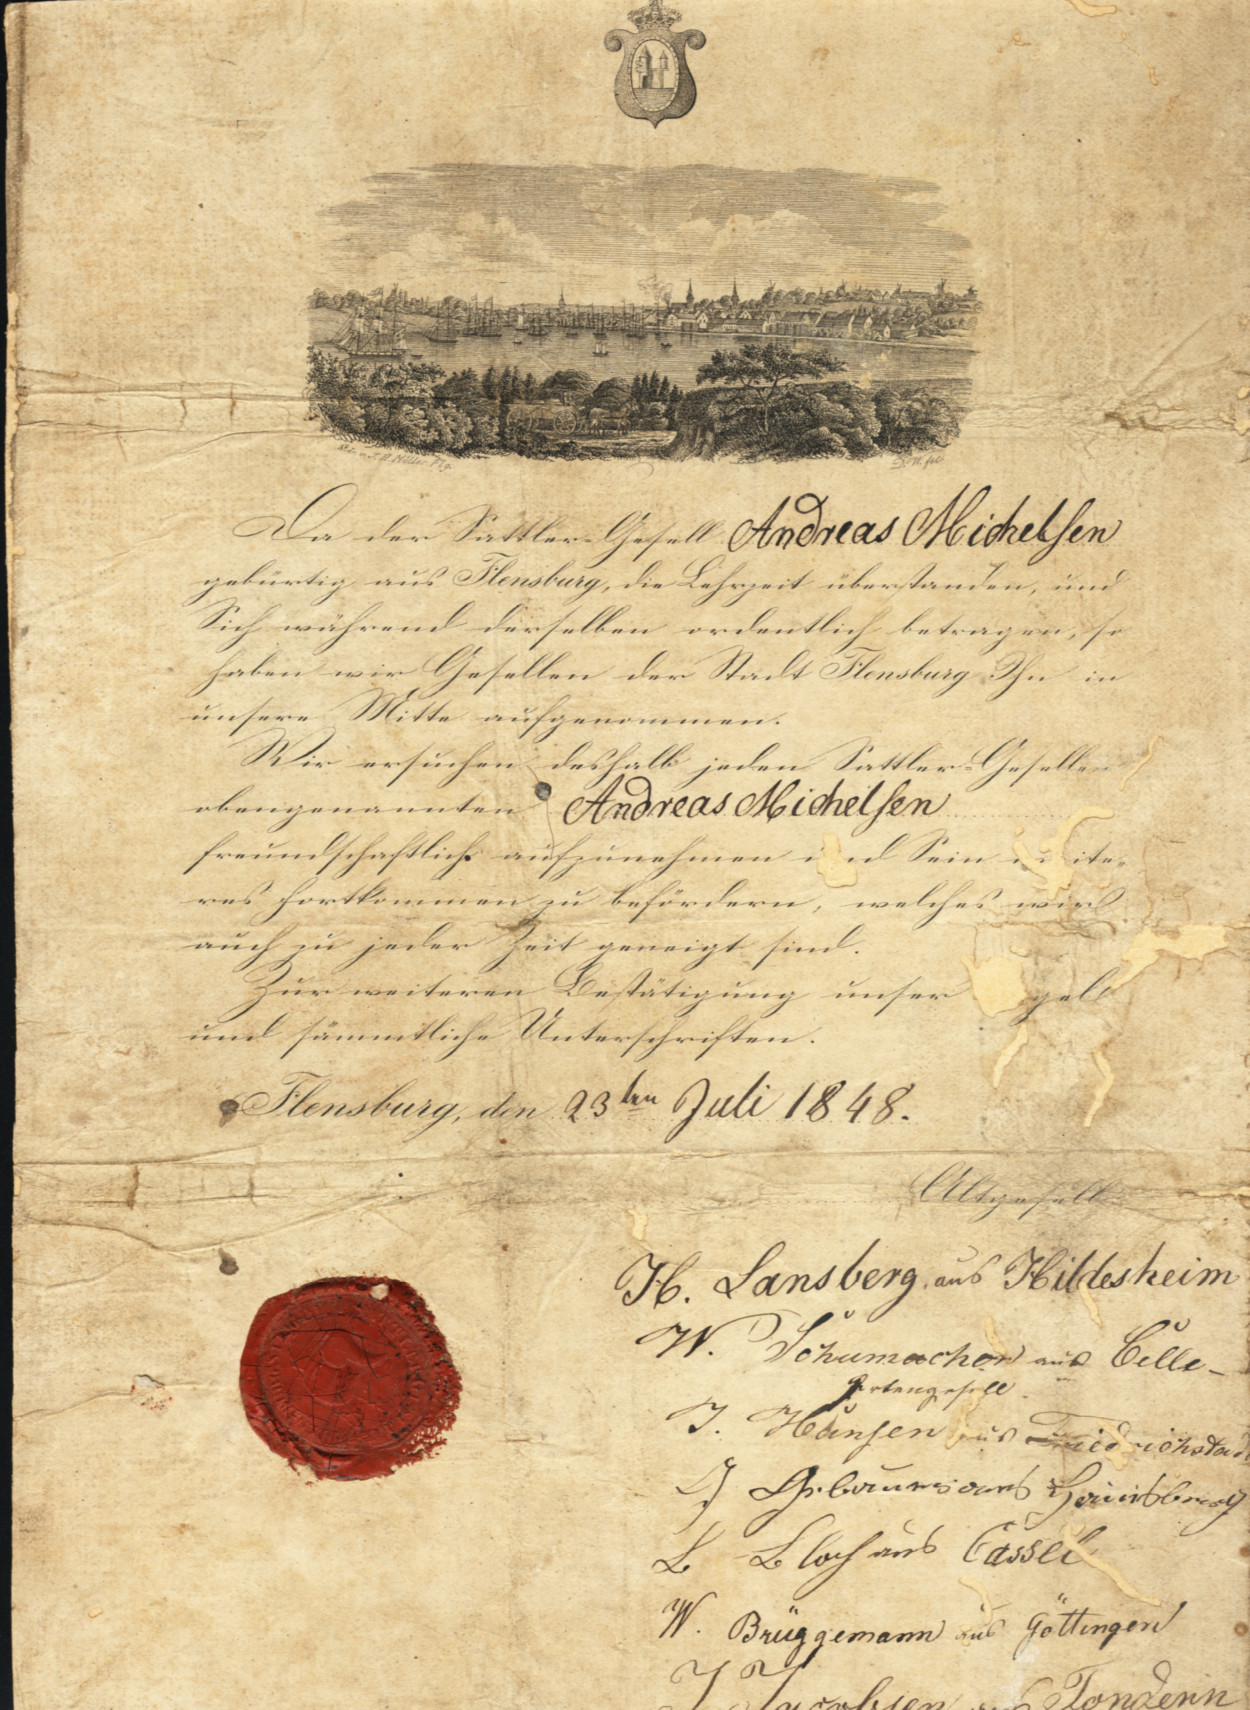 Da der Sattler-Gesell Andreas Michelsen
gebürtig aus Flensburg, die Lehrzeit überstanden, und
Sich während derselben ordentlich betragen, so
haben wir Gesellen der Stadt Flensburg Ihn in
unsere Mitte aufgenommen.
Wir ersuchen deshalb jeden Sattler-Gesellen
obengenannten Andreas Michelsen
freundschaftlichs aufzunehmen und Sein weite-
res Fortkommen zu befördern, welches wir
auch zu jeder Zeit geneigt sind.
Zur weiteren Bestätigung unser
und sämmtliche Unterschriften.
Flensburg, den 23ten Juli 1848.
Altgesell
H. Lansberg aus Hildesheim
W. Schumacher aus Celle
Ortengesell
J. Hansen aus Friedrichstadt
J aus
L Bloch aus Cassel
W. Brüggemann aus Göttingen
J Jacobsen aus Tondern